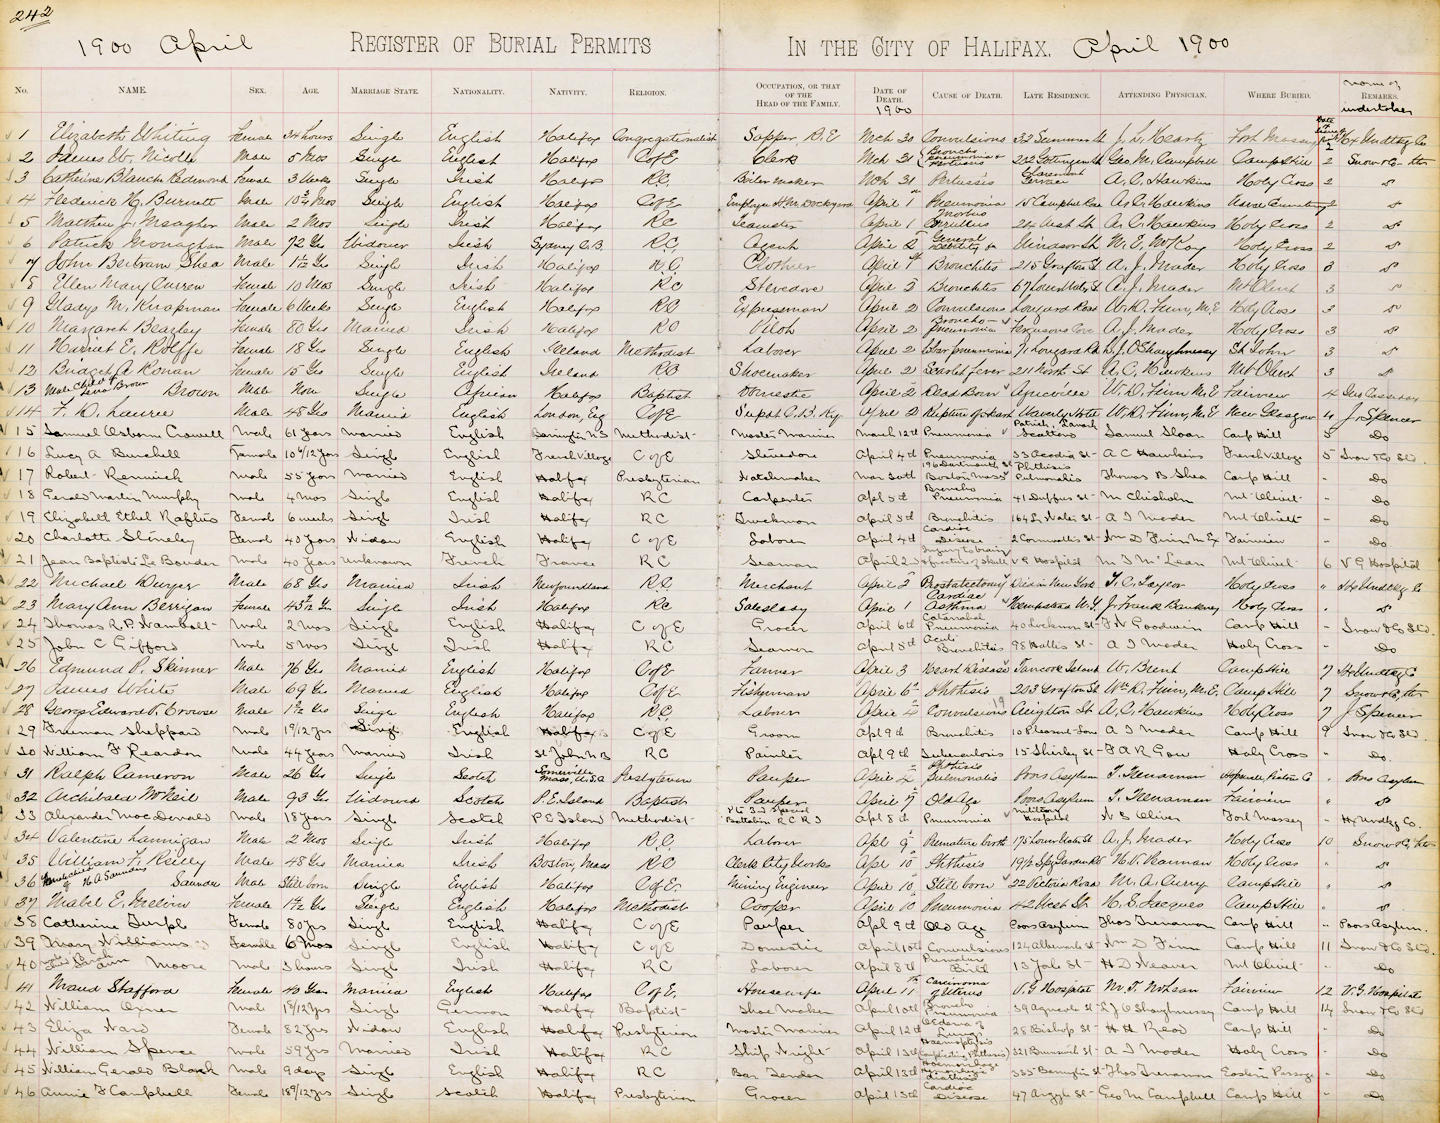 242
1900 April REGISTER OF BURIAL PERMITS IN THE CITY OF HALIFAX. April 1900
No. NAME. SEX. AGE. MARRIAGE STATE. NATIONALITY. NATIVITY. RELIGION. OCCUPATION, OR THAT OF THE HEAD OF THE FAMILY. DATE OF DEATH. 1900 CAUSE OF DEATH. LATE RESIDENCE. ATTENDING PHYSICIAN. WHERE BURIED. Name of REMARKS. undertaker
1 Elizabeth Whiting Female 34 hours Single English Halifax Congregationalist Sapper R.E Mch 30 Convulsions 32 Summer St Fort Massey Hx Undtkg Co
2 James W. Nicolls Male 5 Mos Single English Halifax C of E Clerk Mch 31 Broncho pneumonia & Pertussis 252 Gottingen St Geo. M. Campbell Camp Hill 2 Snow & Co
3 Catherine Blanch Redmond Female 3 Weeks Single Irish Halifax R.C. Boiler maker Mch 31 Pertussis Claremont Terrace A. C. Hawkins Holy Cross 2
4 Frederick H. Burnett Male 10½ Mos Single English Halifax C of E Employee H.M. Dockyard April 1 Pneumonia 15 Campbell Road A. C. Hawkins 2
5 Matthew J. Meagher Male 2 Mos Single Irish Halifax RC Teamster April 1 A. C. Hawkins Holy Cross 2
6 Patrick Monaghan Male 72 Yrs Widower Irish Sydney C.B. R.C Agent April 2 General Debility Windsor St W. E. McKay Holy Cross 2
7 John Bertram Shea Male 1 1/12 Yrs Single Irish Halifax R.C. Clothier April 1st Bronchitis 215 Grafton St A. J. Mader Holy Cross 3
8 Ellen Mary Curren Female 10 Mos Single Irish Halifax RC Stevedore April 2 Bronchitis 67 Lower Water St A. J. Mader Mt Olivet 3
9 Gladys M. Knapman Female 6 Weeks Single English Halifax RC Expressman April 2 Convulsions Longard Road W. D. Finn, M.E Holy Cross 3
10 Margaret Beazley Female 80 Yrs Married Irish Halifax RC Pilot April 2 Broncho-pneumonia Fergusons Cove A. J. Mader Holy Cross 3
11 Harriet E. Rolffe Female 18 Yrs Single English Iceland Methodist Laborer April 2 71 Longard Rd W. J. O'Shaughnessy St John 3
12 Bridget A Ronan Female 15 Yrs Single English Iceland RC Shoemaker April 2 Scarlet fever 211 North St A. C. Hawkins Mt Olivet 3
13 Male Child of Lena Brown Brown Male Now Single African Halifax Baptist Domestic April 2 Dead Born Africville W. D. Finn M.E Fairview 4
14 F. D. Laurie Male 48 Yrs Married English London, Eng C of E Supt C.B. Ry April 2 Rupture of Heart Waverly Hotel W. D. Finn, M.E New Glasgow 4 J. Spencer
15 Samuel Osborn Crowell Male 61 years Married English Barrington N.S Methodist Master Mariner March 12th Pneumonia Patrick, Lanark Scotland Samuel Sloan Camp Hill 5 Do
16 Lucy A Burchell Female 10 6/12 yrs Single English French Village C of E Stevedore April 4th Pneumonia 33 Acadia St A C Hawkins French Village 5 Snow & Co Ltd.
17 Robert Renwick Male 55 years Married English Halifax Presbyterian Watchmaker Mar 30th 196 Dartmouth St Boston Mass Phthisis Pulmonalis Thomas B. Shea Camp Hill " Do
18 Gerald Martin Murphy Male 4 Mos Single English Halifax RC Carpenter Apl 5th Broncho Pneumonia 41 Duffus St M Chisholm Mt Olivet " Do
19 Elizabeth Ethel Raftus Female 6 weeks Single Irish Halifax RC Truckman April 5th Bronchitis 164 L. Water St A I Mader Mt Olivet " Do
20 Charlotte Shineley Female 40 years Widow English Halifax C of E Laborer April 4th Cardiac Disease 2 Cornwallis St Wm D Finn M Ex Fairview " Do
21 Jean Baptiste Le Bouder Male 40 years Unknown French France RC Seaman April 2 Injury to brain V G Hospital Mt Olivet 6 V G Hospital
22 Michael Dwyer Male 68 Yrs Married Irish Newfoundland R.C. Merchant April 2 Prostatectomy Died in New York T. C. Taylor Holy Cross " Hx Undtkg Co
23 Mary Ann Berrigan Female Single Irish Halifax RC Saleslady April 1 Cardiac Asthma Hempstead N.Y. Holy Cross "
24 Thomas R. P. Nambolt Male 2 mos Single English Halifax C of E Grocer April 6th Catarrhal Pneumonia T. N Goodwin Camp Hill " Snow & Co Ltd.
25 John C Gifford Male 5 Mos Single Irish Halifax RC Seaman April 5th Acute Bronchitis 98 Hollis St A I Mader Holy Cross " Do
26 Edmund P. Skinner Male 76 Yrs Married English Halifax C of E Farmer April 3 Heart Disease Tancook Island W. Brent Camp Hill 7 Hx Undtkg Co
27 James White Male 69 Yrs Married English Halifax C of E Fisherman April 6 Phthisis 203 Grafton St Wm D. Finn, M.E. Camp Hill 7 Snow & Co, Ltd
28 George Edward P. Crowse Male Single English Halifax R.C. Laborer April 4 Convulsions 19 Creighton St A. C. Hawkins Holy Cross 7 J. Spencer
29 Freeman Sheppard Male 19/12 yrs Single English Halifax C of E Groom Apl 9th Bronchitis 10 Pleasant Tce A I Mader Camp Hill 9 Snow & Co Ltd.
30 William F Reardon Male 44 years Married Irish St. John N B RC Painter Apl 9th Tuberculosis 15 Shirley St F A R Gow Holy Cross " Do.
31 Ralph Cameron Male 26 Yrs Single Scotch Somerville Mass, U.S.A Presbyterian Pauper April 4 Phthisis Pulmonalis Poors Asylum T. Trenaman Hopewell, Pictou Co " Poors Asylum
32 Archibald McNeil Male 93 Yrs Widowed Scotch P.E. Island Baptist Pauper April 7 Old Age Poors Asylum T. Trenaman Fairview "
33 Alexander MacDonald Male 18 years Single Scotch P E Island Methodist Pte 3rd Special Battalion R C R I Apl 8th Pneumonia Military Hospital N S Oliver Fort Massey " Hx Undtkg Co.
34 Valentine Lannigan Male 2 Mos Single Irish Halifax R.C. Laborer Apl 9 Premature birth 175 Lower Water St A. J. Mader Holy Cross 10 Snow & Co, Ltd
35 William F. Reilly Male 48 Yrs Married Irish Boston, Mass RC Clerk City Works Apl 10 Phthisis 19½ Spg Garden Rd Holy Cross "
36 Female child of H A Saunders Saunders Male Still born Single English Halifax C of E. Mining Engineer April 10 Still born 22 Victoria Road M. A. Curry Camp Hill "
37 Mabel E. Melvin Female Single English Halifax Methodist Cooper April 10 Pneumonia 42 West St H. G. Jacques Camp Hill "
38 Catherine Turple Female 80 yrs Single English Halifax C of E Pauper Apl 9th Old Age Poors Asylum Thos Trenaman Camp Hill " Poors Asylum.
39 Mary Williams Female 6 Mos Single English Halifax C of E Domestic April 10th Convulsions 124 Albemarle St Wm D Finn Camp Hill 11 Snow & Co Ltd.
40 Moore Male 3 hours Single Irish Halifax RC Laborer April 8th Premature Birth H D Weaver Mt Olivet " Do
41 Maud Stafford Female 40 Yrs Married English Halifax C of E. Housewife April 11th Carcinoma of Uterus V. G Hospital Fairview 12 V. G. Hospital
42 William Oxner Male 19/12 yrs Single German Halifax Baptist Shoe Maker April 10th Broncho Pneumonia 59 Agricola St L J O Shaughnessy Camp Hill 14 Snow & Co Ltd
43 Eliza Ward Female 82 yrs Widow English Halifax Presbyterian Master Mariner April 12th Oedema of Lungs 28 Bishop St H H Read Camp Hill " Do
44 William Spence Male 59 yrs Married Irish Halifax RC Ship Wright April 13th Haemoptysis Complicating Phthisis 321 Brunswick St A I Mader Holy Cross " Do
45 William Gerald Black Male 9 days Single English Halifax RC Bar Tender April 13th 335 Barrington St Thos Trenaman Eastern Passage " Do
46 Annie F Campbell Female 18 9/12 yrs Single Scotch Halifax Presbyterian Grocer April 13th Cardiac Disease 47 Argyle St Geo M Campbell Camp Hill " Do